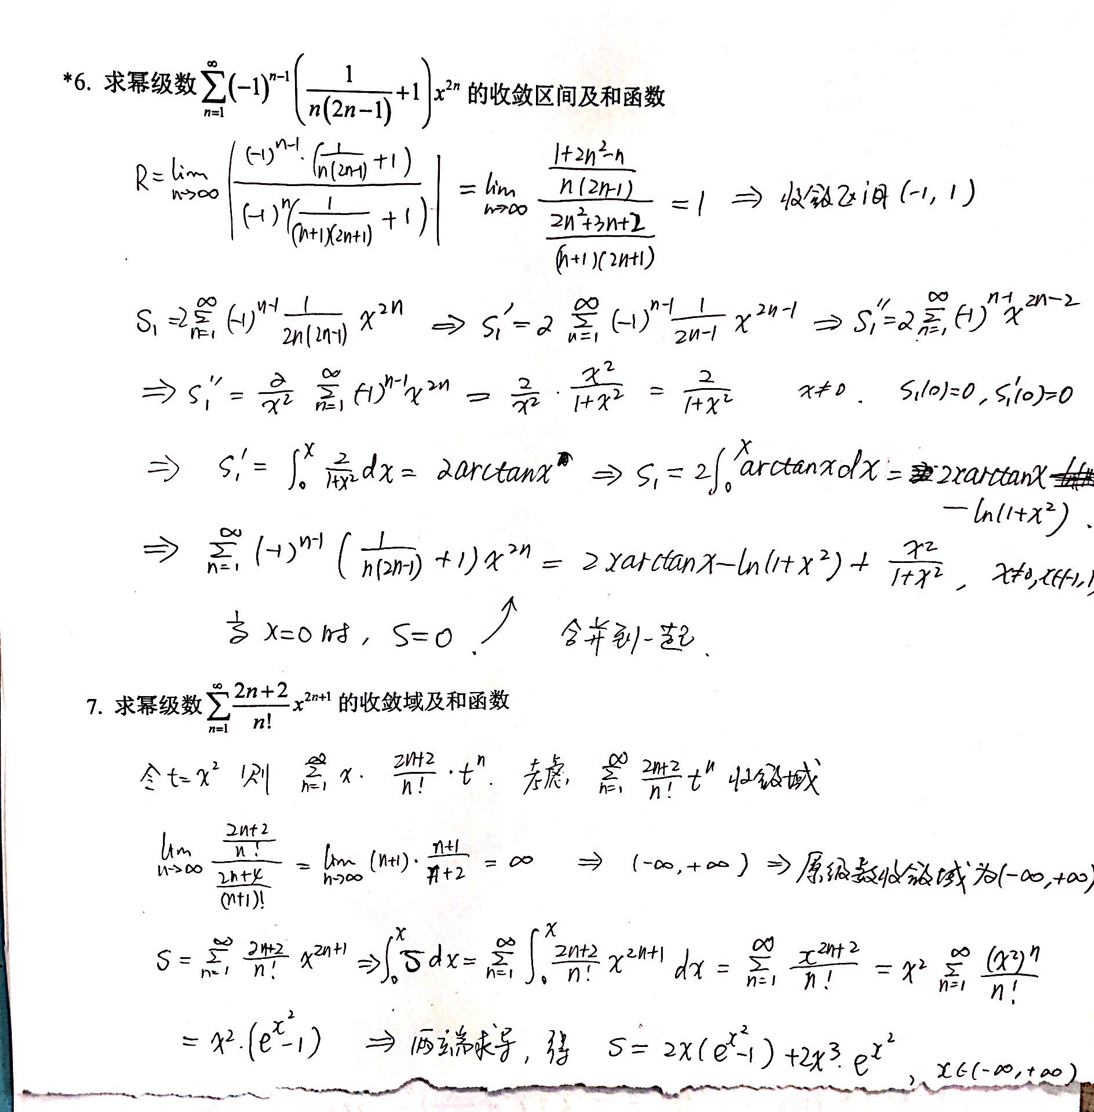 *6. 求幂级数∑_{n=1}^{∞}(-1)^{n-1}(1/(n(2n-1))+1)x^{2n} 的收敛区间及和函数
R = lim_{n→∞} |((-1)^{n-1}·(1/(n(2n-1))+1))/((-1)^n(1/((n+1)(2n+1))+1))| = lim_{n→∞} ((1+2n²-n)/(n(2n-1)))/((2n²+3n+2)/((n+1)(2n+1))) = 1 ⇒ 收敛区间(-1, 1)
S₁ = 2∑_{n=1}^{∞}(-1)^{n-1} 1/(2n(2n-1)) x^{2n} ⇒ S₁' = 2∑_{n=1}^{∞}(-1)^{n-1} 1/(2n-1) x^{2n-1} ⇒ S₁'' = 2∑_{n=1}^{∞}(-1)^{n-1} x^{2n-2}
⇒ S₁'' = 2/x² ∑_{n=1}^{∞}(-1)^{n-1}x^{2n} = 2/x² · x²/(1+x²) = 2/(1+x²) x≠0. S₁(0)=0, S₁'(0)=0
⇒ S₁' = ∫₀^x 2/(1+x²) dx = 2arctanx ⇒ S₁ = 2∫₀^x arctanx dx = 2xarctanx
-ln(1+x²).
⇒ ∑_{n=1}^{∞}(-1)^{n-1}(1/(n(2n-1))+1)x^{2n} = 2xarctanx-ln(1+x²)+x²/(1+x²), x≠0, x∈(-1,1
当 x=0时, S=0. ↗ 合并到一起.
7. 求幂级数∑_{n=1}^{∞}(2n+2)/n! x^{2n+1} 的收敛域及和函数
令 t=x² 则 ∑_{n=1}^{∞} x·(2n+2)/n!·t^n. 考虑 ∑_{n=1}^{∞}(2n+2)/n! t^n 收敛域
lim_{n→∞} ((2n+2)/n!)/((2n+4)/(n+1)!) = lim_{n→∞}(n+1)·(n+1)/(n+2) = ∞ ⇒ (-∞,+∞) ⇒ 原级数收敛域为(-∞,+∞)
S = ∑_{n=1}^{∞}(2n+2)/n! x^{2n+1} ⇒ ∫₀^x S dx = ∑_{n=1}^{∞}∫₀^x (2n+2)/n! x^{2n+1} dx = ∑_{n=1}^{∞} x^{2n+2}/n! = x²∑_{n=1}^{∞}(x²)^n/n!
= x²·(e^{x²}-1) ⇒ 两端求导, 得 S = 2x(e^{x²}-1)+2x³·e^{x²}, x∈(-∞,+∞)